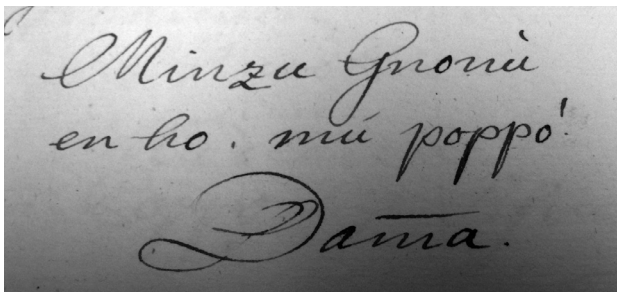 Minzu Gnonù
en ho. mú poppó!
Dama.